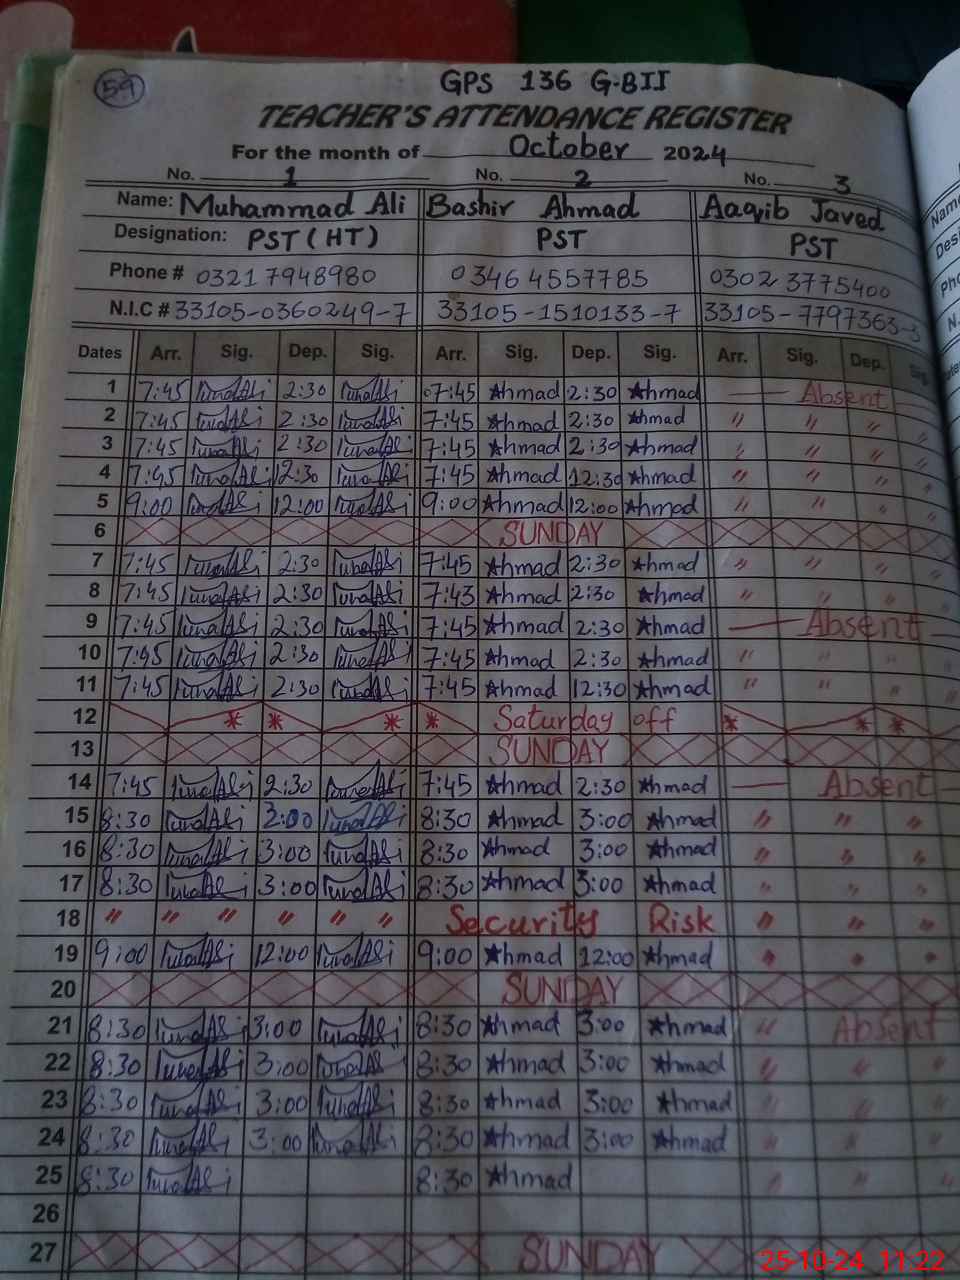 59
GPS 136 G-BII
TEACHER'S ATTENDANCE REGISTER
For the month of October 2024
No. 1 No. 2 No. 3
Name: Muhammad Ali Bashir Ahmad Aaqib Javed
Designation: PST (HT) PST PST
Phone # 03217948980 03464557785 03023775400
N.I.C # 33105-0360249-7 33105-1510133-7 33105-7797363-3
Dates Arr. Sig. Dep. Sig. Arr. Sig. Dep. Sig. Arr. Sig. Dep. Sig.
1 7:45 2:30 07:45 Ahmad 2:30 Ahmad — Absent
2 7:45 2:30 7:45 Ahmad 2:30 Ahmad " " " "
3 7:45 2:30 7:45 Ahmad 2:30 Ahmad " " " "
4 7:45 12:30 7:45 Ahmad 12:30 Ahmad " " " "
5 9:00 12:00 9:00 Ahmad 12:00 Ahmad " " " "
6 SUNDAY
7 7:45 2:30 7:45 Ahmad 2:30 Ahmad " " " "
8 7:45 2:30 7:43 Ahmad 2:30 Ahmad " " " "
9 7:45 2:30 7:45 Ahmad 2:30 Ahmad — Absent
10 7:45 2:30 7:45 Ahmad 2:30 Ahmad " " " "
11 7:45 2:30 7:45 Ahmad 12:30 Ahmad " " " "
12 * * * * Saturday off * * *
13 SUNDAY
14 7:45 2:30 7:45 Ahmad 2:30 Ahmad — Absent
15 8:30 3:00 8:30 Ahmad 3:00 Ahmad " " "
16 8:30 3:00 8:30 Ahmad 3:00 Ahmad " " "
17 8:30 3:00 8:30 Ahmad 3:00 Ahmad " " "
18 " " " " " " Security Risk " " "
19 9:00 12:00 9:00 Ahmad 12:00 Ahmad " " "
20 SUNDAY
21 8:30 3:00 8:30 Ahmad 3:00 Ahmad " Absent
22 8:30 3:00 8:30 Ahmad 3:00 Ahmad " " "
23 8:30 3:00 8:30 Ahmad 3:00 Ahmad " " "
24 8:30 3:00 8:30 Ahmad 3:00 Ahmad " " "
25 8:30 8:30 Ahmad " " "
26
27 SUNDAY
25-10-24 11:22